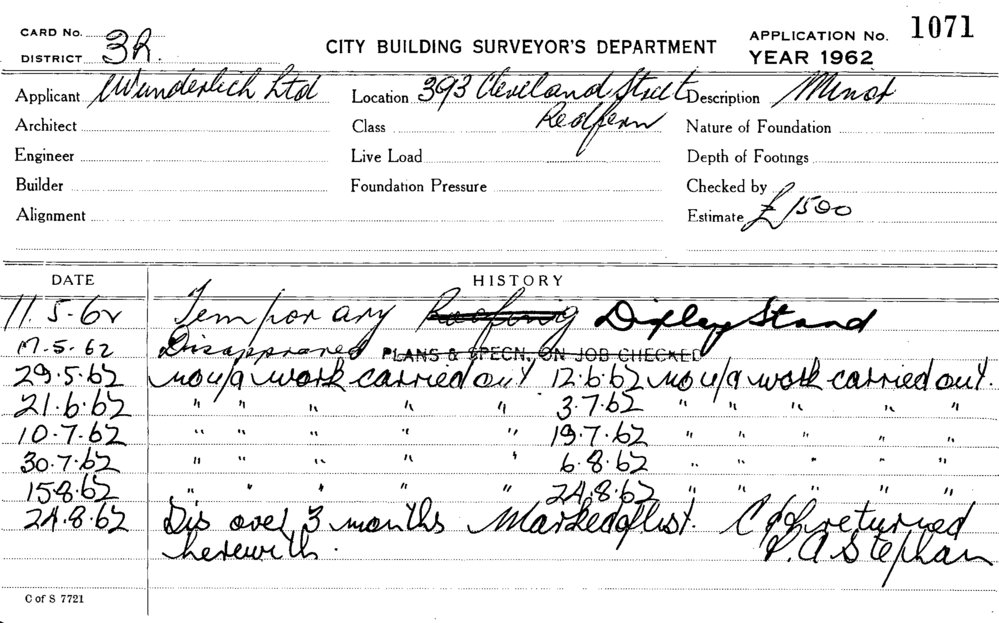 CARD No.
DISTRICT 3R.
CITY BUILDING SURVEYOR'S DEPARTMENT
APPLICATION No. 1071
YEAR 1962
Applicant Wunderlich Ltd Location 393 Cleveland Street Description Minor
Redfern
Architect Class Nature of Foundation
Engineer Live Load Depth of Footings
Builder Foundation Pressure Checked by
Alignment Estimate £1500
DATE HISTORY
11.5.62 Temporary Roofing Display Stand
17.5.62 Disapproved PLANS & SPECN, ON JOB CHECKED
29.5.62 no u/a work carried out 12.6.62 no u/a work carried out.
21.6.62 " " " " " 3.7.62 " " " " "
10.7.62 " " " " " 19.7.62 " " " " "
30.7.62 " " " " " 6.8.62 " " " " "
15.8.62 " " " " " 24.8.62 " " " " "
24.8.62 Dis over 3 months Marked off list. returned
herewith. Stephan
C of S 7721